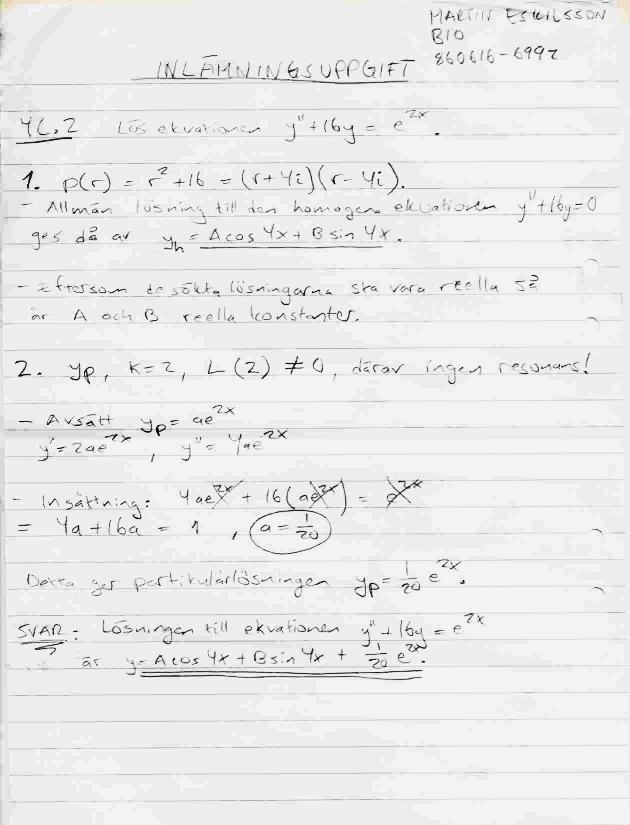 MARTIN ESKILSSON
BIO
860616-6992
INLÄMNINGSUPPGIFT
4C.2 Lös ekvationen y"+16y = e^2x.
1. p(r) = r²+16 = (r+4i)(r-4i).
- Allmän lösning till den homogena ekvationen y"+16y=0
ges då av y_h = A cos 4x + B sin 4x.
- Eftersom de sökta lösningarna ska vara reella så
är A och B reella konstanter.
2. yp, K=2, L(2) ≠ 0, därav ingen resonans!
- Avsätt yp = ae^2x
y'=2ae^2x, y" = 4ae^2x
- Insättning: 4ae^2x + 16(ae^2x) = e^2x
= 4a+16a = 1, a = 1/20
Detta ger partikulärlösningen yp = 1/20 e^2x.
SVAR: Lösningen till ekvationen y"+16y = e^2x
är y = A cos 4x + B sin 4x + 1/20 e^2x.